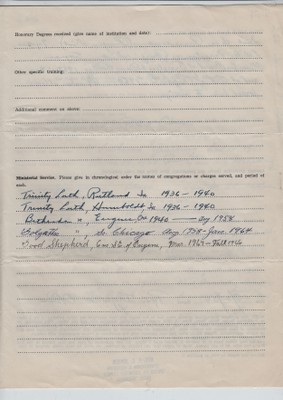 Honorary Degrees received (give name of institution and date):
Other specific training:
Additional comment on above:
Ministerial Service. Please give in chronological order the names of congregations or charges served, and period of
each.
Trinity Luth, Rutland Ia 1936 - 1940
Trinity Luth, Humboldt, Ia 1936 - 1940
Bethesda ", Eugene, Ore 1940 — Ag 1958
", So Chicago Aug 1958 - June 1964
Good Shepherd, 6 mi of Eugene, Mar.